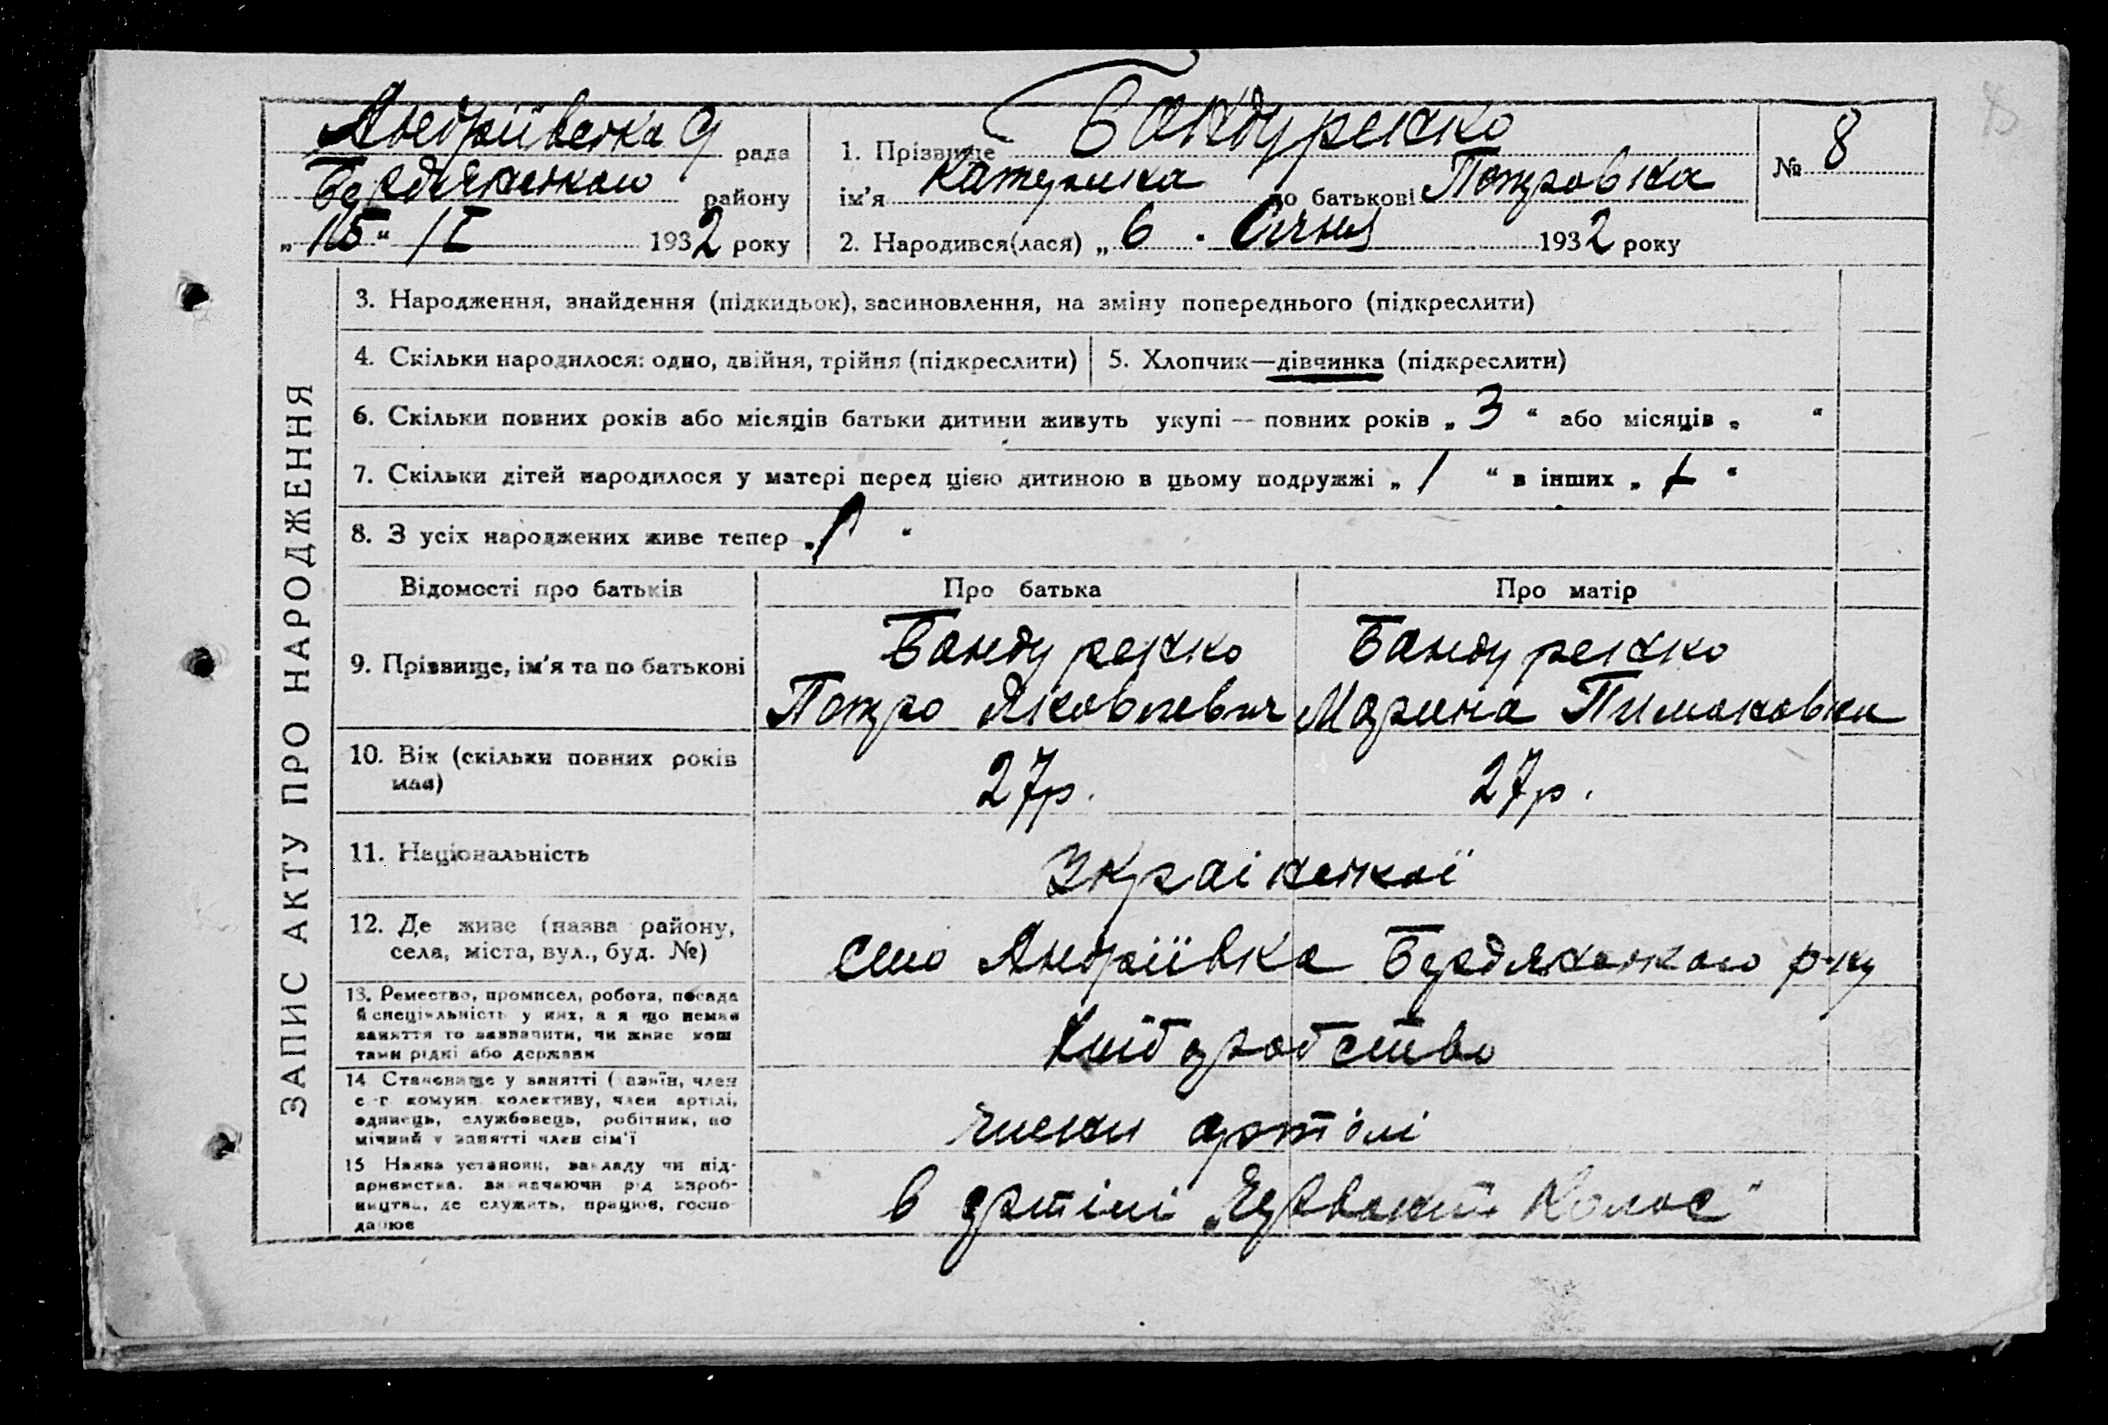 Андріївська рада
Бердянського району
„15“ I 1932 року
1. Прізвище Бандуренко
ім'я Катерина по батькові Петровна
2. Народився(лася) „6. Січня 1932 року
№ 8
8
ЗАПИС АКТУ ПРО НАРОДЖЕННЯ
3. Народження, знайдення (підкидьок), засиновлення, на зміну попереднього (підкреслити)
4. Скільки народилося: одно, двійня, трійня (підкреслити)
5. Хлопчик—дівчинка (підкреслити)
6. Скільки повних років або місяців батьки дитини живуть укупі — повних років „3“ або місяців „ “
7. Скільки дітей народилося у матері перед цією дитиною в цьому подружжі „1“ в інших „ “
8. З усіх народжених живе тепер „1“
Відомості про батьків Про батька Про матір
9. Прізвище, ім'я та по батькові
Бандуренко
Петро Яковлевич
Бандуренко
Марина Пимоновна
10. Вік (скільки повних років
має)
27р. 27р.
11. Національність
Украінської
12. Де живе (назва району,
села, міста, вул., буд. №)
село Андріївка Бердянського р-ну
13. Ремество, промисел, робота, посада
й спеціяльність у них, а якщо немає
заняття то зазначити, чи живе кош
тами рідні або держави
Хліборобство
14 Становище у занятті (хазяїн, член
с-г комуни колективу, член артілі,
одинець, службовець, робітник, по
мічний у занятті член сім'ї
члени артілі
15 Назва установи, закладу чи під-
приємства, зазначаючи рід вироб-
ництва, де служить, працює, госпо-
дарює
в артілі „ Колос“